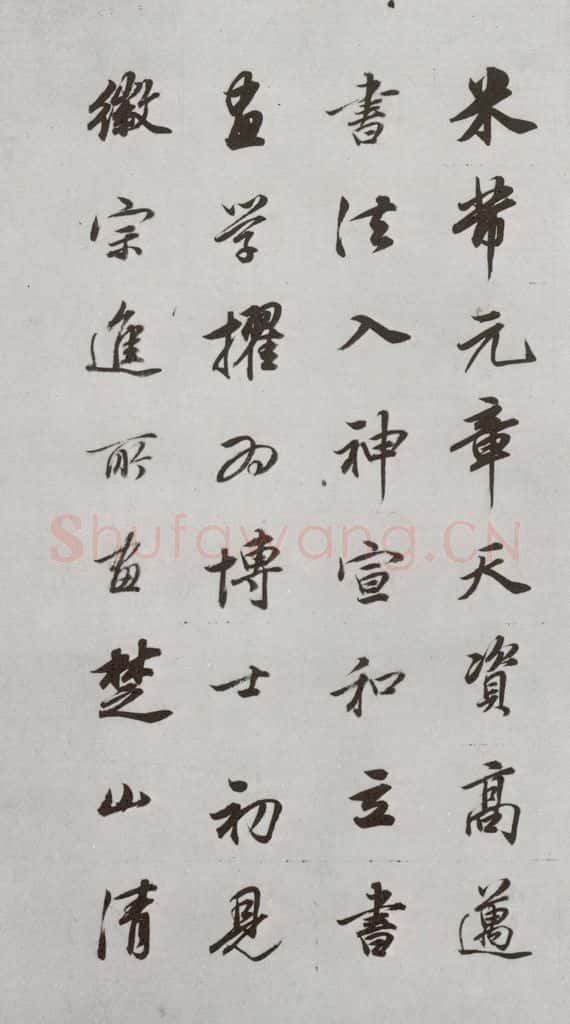 米芾元章天資高邁
書法入神宣和立書
畫學擢為博士初見
徽宗進所畫楚山清
Shufawang.CN